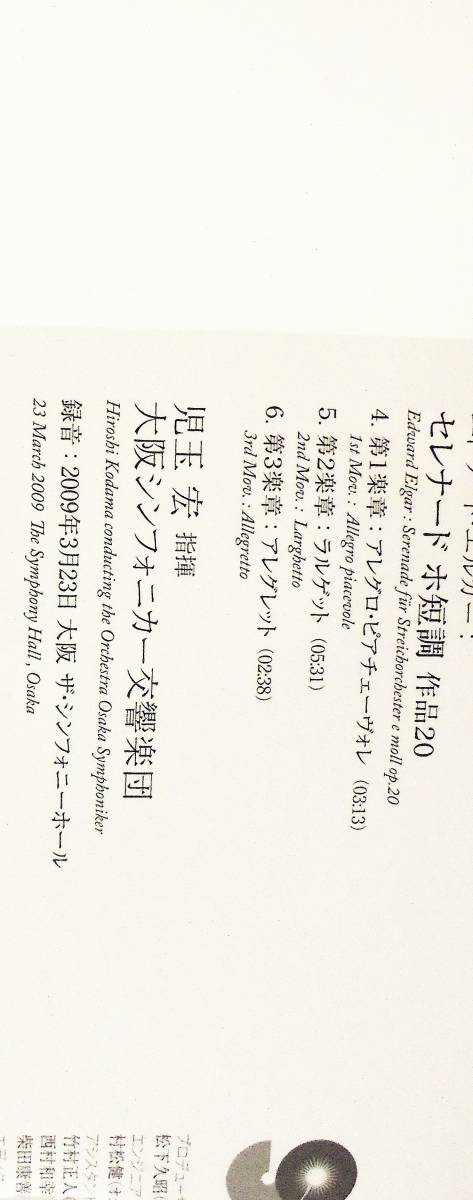 セレナード ホ短調 作品20
Edward Elgar : Serenade für Streichorchester e moll op.20
4. 第1楽章：アレグロ・ピアチェーヴォレ (03:13)
1st Mov. : Allegro piacevole
5. 第2楽章：ラルゲット (05:31)
2nd Mov. : Larghetto
6. 第3楽章：アレグレット (02:38)
3rd Mov. : Allegretto
児玉 宏 指揮
大阪シンフォニカー交響楽団
Hiroshi Kodama conducting the Orchestra Osaka Symphoniker
録音：2009年3月23日 大阪 ザ・シンフォニーホール
23 March 2009 The Symphony Hall, Osaka
プロデュー
松下久昭
エンジニア
村松健(オ
アシスタン
竹村正人
西村和幸
柴田康善